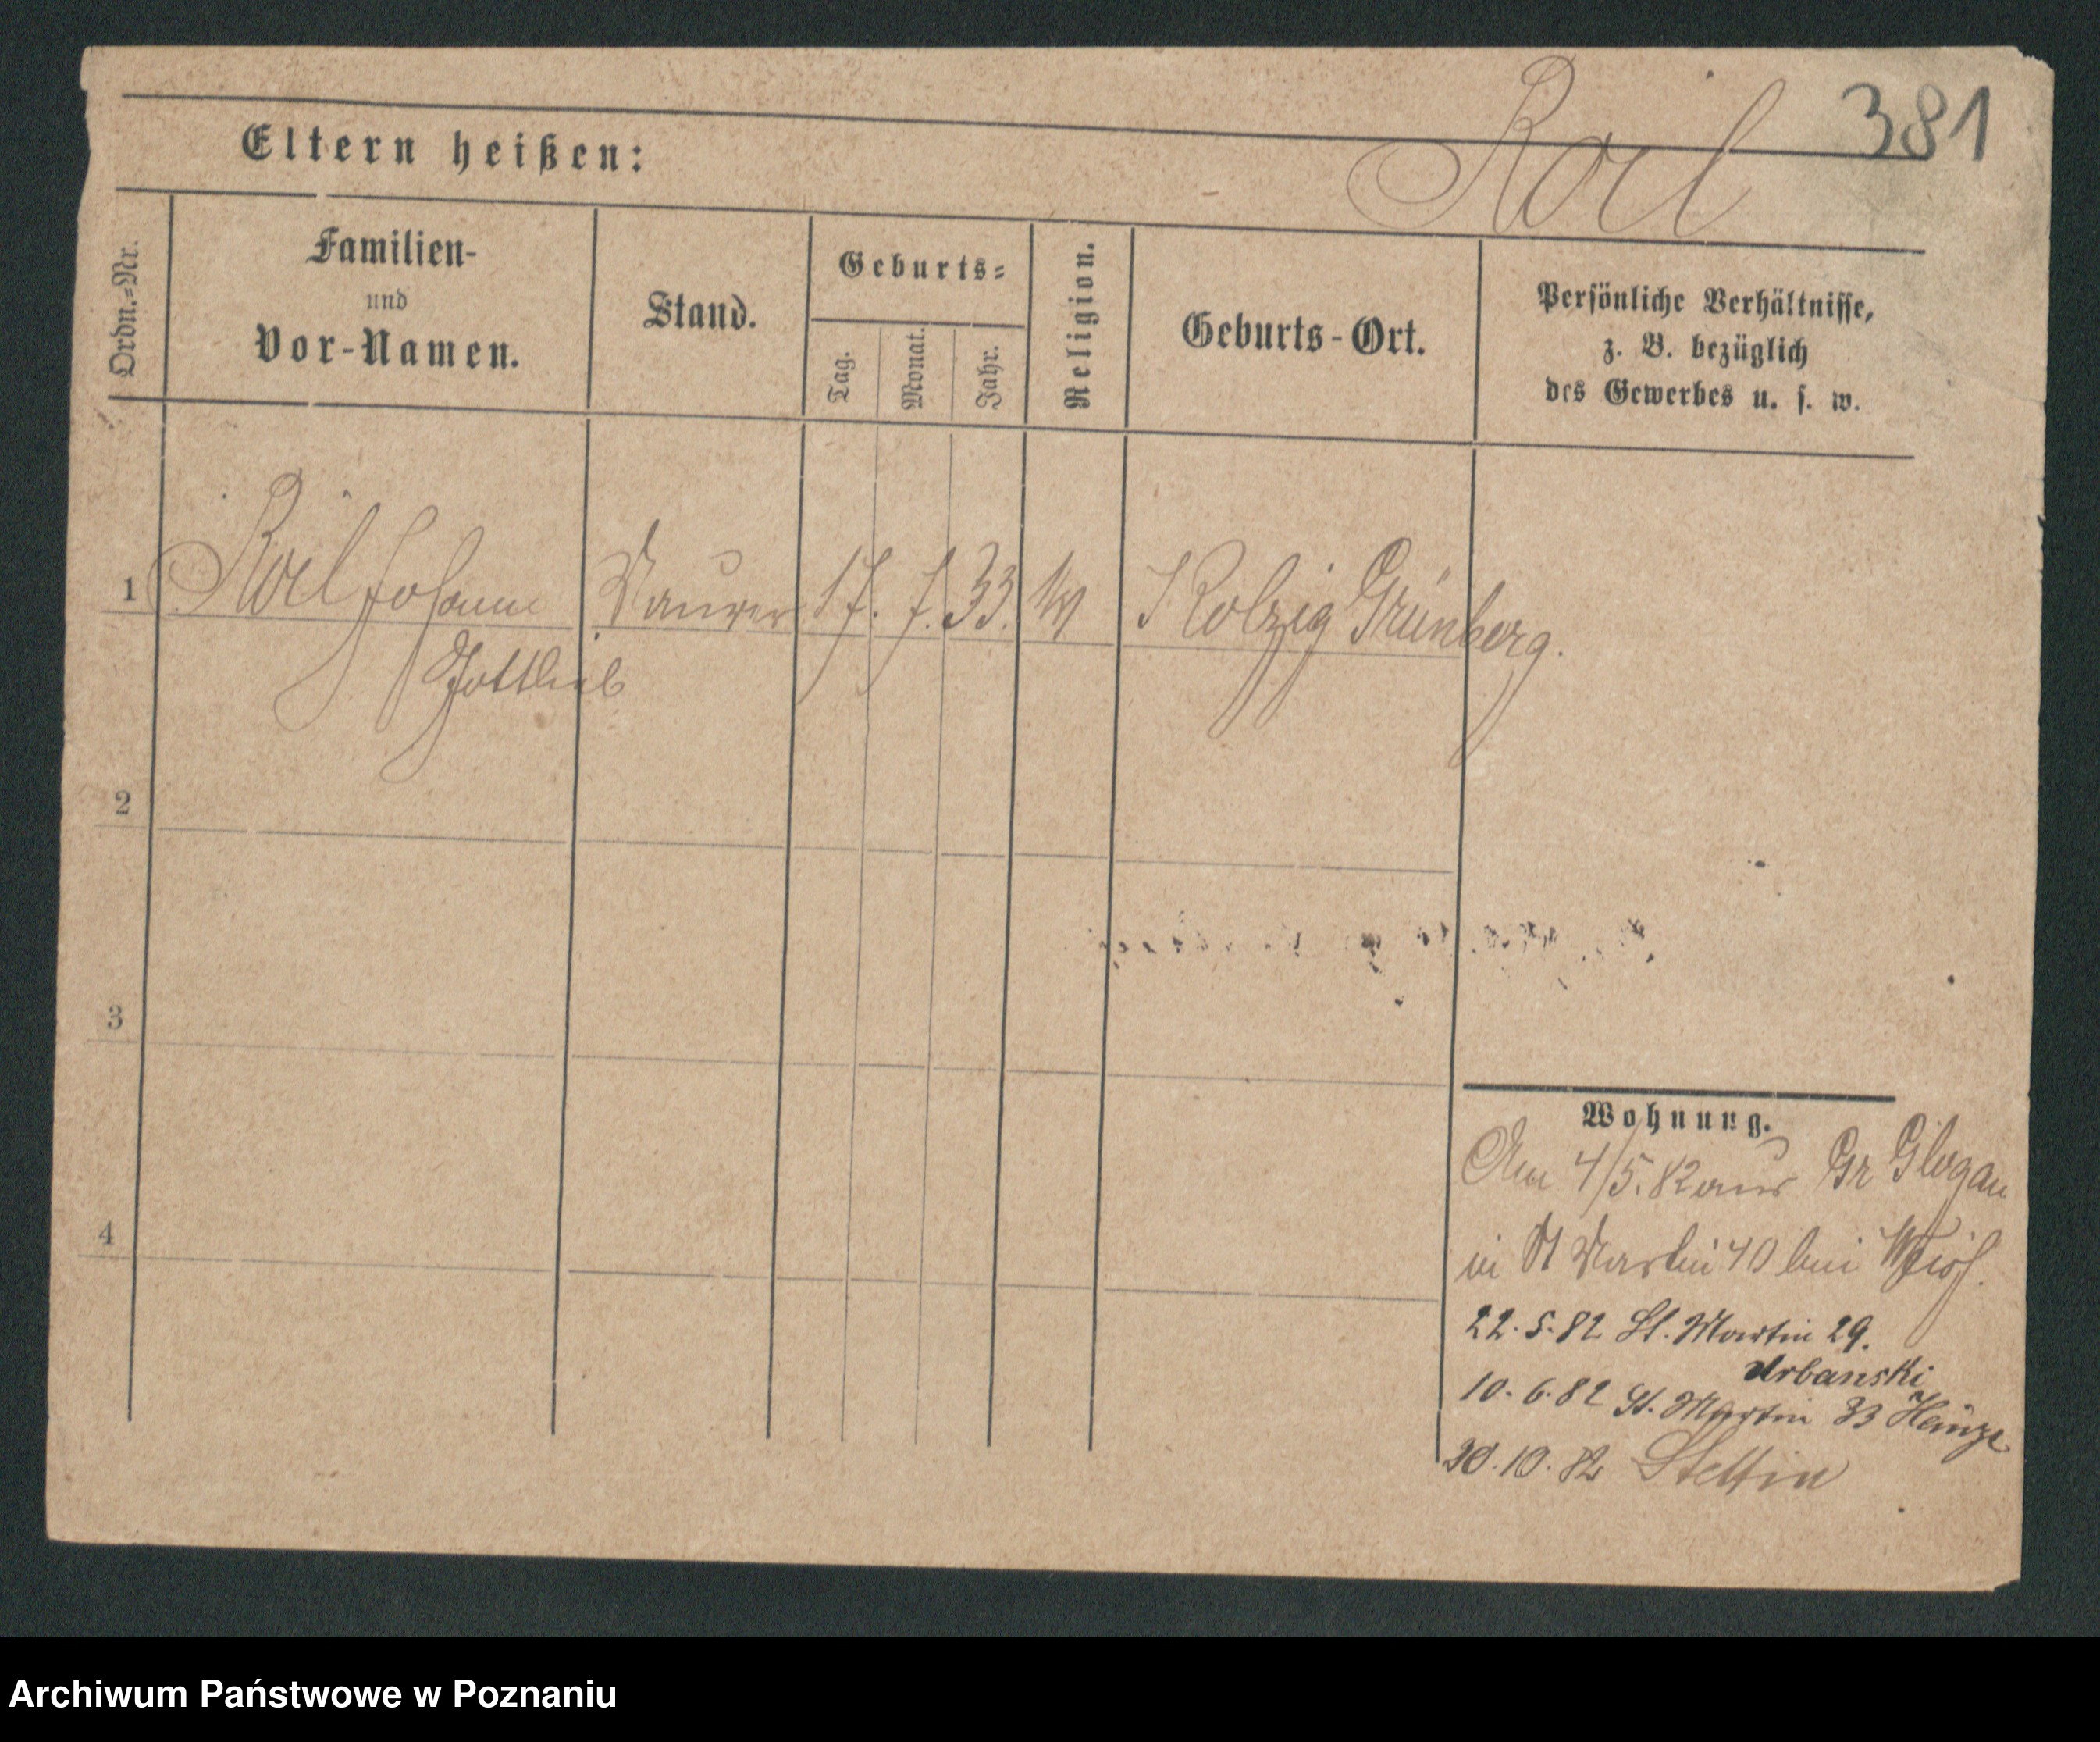 Roil 381
Eltern heißen:
Ordn.-Nr.
Familien-
und
Vor-Namen.
Stand.
Geburts-
Tag.
Monat.
Jahr.
Religion.
Geburts-Ort.
Persönliche Verhältnisse,
z. B. bezüglich
des Gewerbes u. s. w.
1 Roil Johann Maurer 17. 7. 33. Kolzig Grünberg.
Gottlieb
2
3
4
Wohnung.
Am 4/5.82 aus Gr Glogau
in St Martin 40 bei
22.5.82 St. Martin 29.
Urbanski
10.6.82 St. Martin 33 Heinze
10.82 Stettin
Archiwum Państwowe w Poznaniu